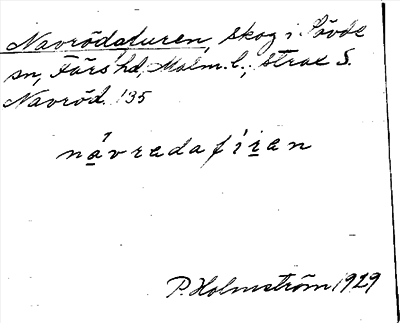 Navrödaturen, skog i Sövde
sn, Färs hd, Malm. l., strax S.
Navröd. '35
návredafiran
P. Holmström 1929